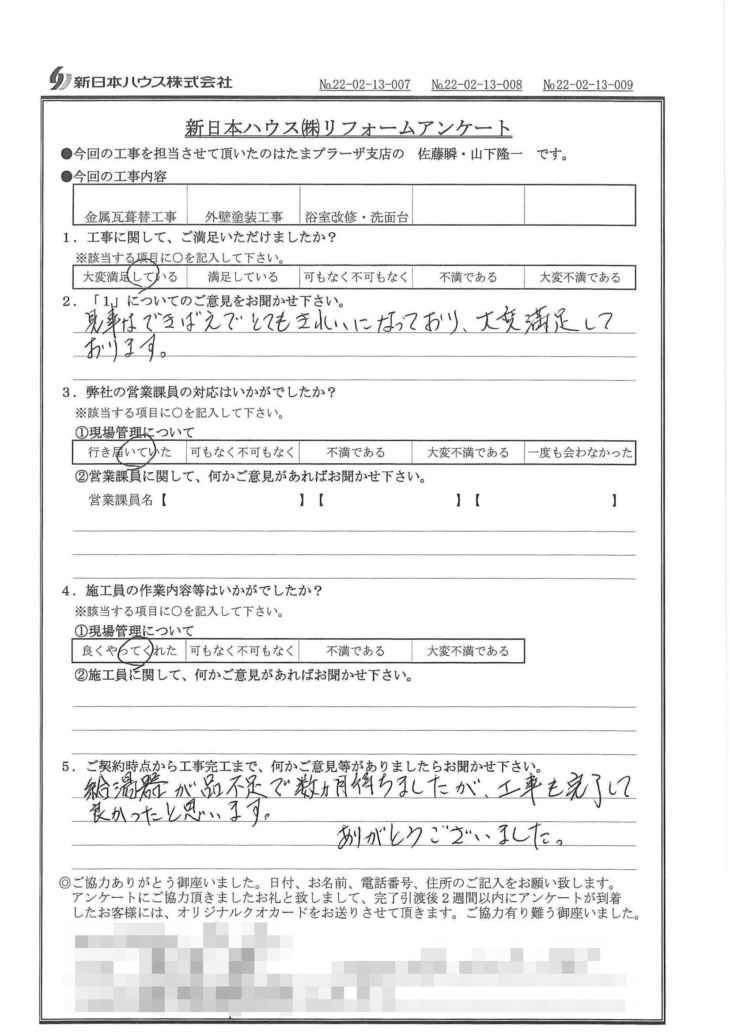 新日本ハウス株式会社 №22-02-13-007 №22-02-13-008 №22-02-13-009
新日本ハウス㈱リフォームアンケート
●今回の工事を担当させて頂いたのはたまプラーザ支店の 佐藤瞬・山下隆一 です。
●今回の工事内容
金属瓦葺替工事 外壁塗装工事 浴室改修・洗面台
1．工事に関して、ご満足いただけましたか？
※該当する項目に○を記入して下さい。
大変満足している 満足している 可もなく不可もなく 不満である 大変不満である
2．「1」についてのご意見をお聞かせ下さい。
見事なできばえでとてもきれいになっており、大変満足して
おります。
3．弊社の営業課員の対応はいかがでしたか？
※該当する項目に○を記入して下さい。
①現場管理について
行き届いていた 可もなく不可もなく 不満である 大変不満である 一度も会わなかった
②営業課員に関して、何かご意見があればお聞かせ下さい。
営業課員名【 】【 】【 】
4．施工員の作業内容等はいかがでしたか？
※該当する項目に○を記入して下さい。
①現場管理について
良くやってくれた 可もなく不可もなく 不満である 大変不満である
②施工員に関して、何かご意見があればお聞かせ下さい。
5．ご契約時点から工事完工まで、何かご意見等がありましたらお聞かせ下さい。
給湯器が品不足で数ヵ月待ちましたが、工事も完了して
良かったと思います。
ありがとうございました。
◎ご協力ありがとう御座いました。日付、お名前、電話番号、住所のご記入をお願い致します。
アンケートにご協力頂きましたお礼と致しまして、完了引渡後２週間以内にアンケートが到着
したお客様には、オリジナルクオカードをお送りさせて頂きます。ご協力有り難う御座いました。